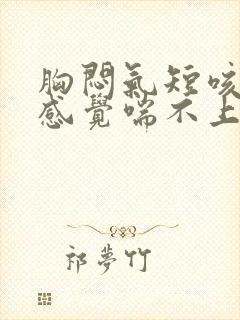 胸悶氣短咳
感覺喘不上
祁夢竹